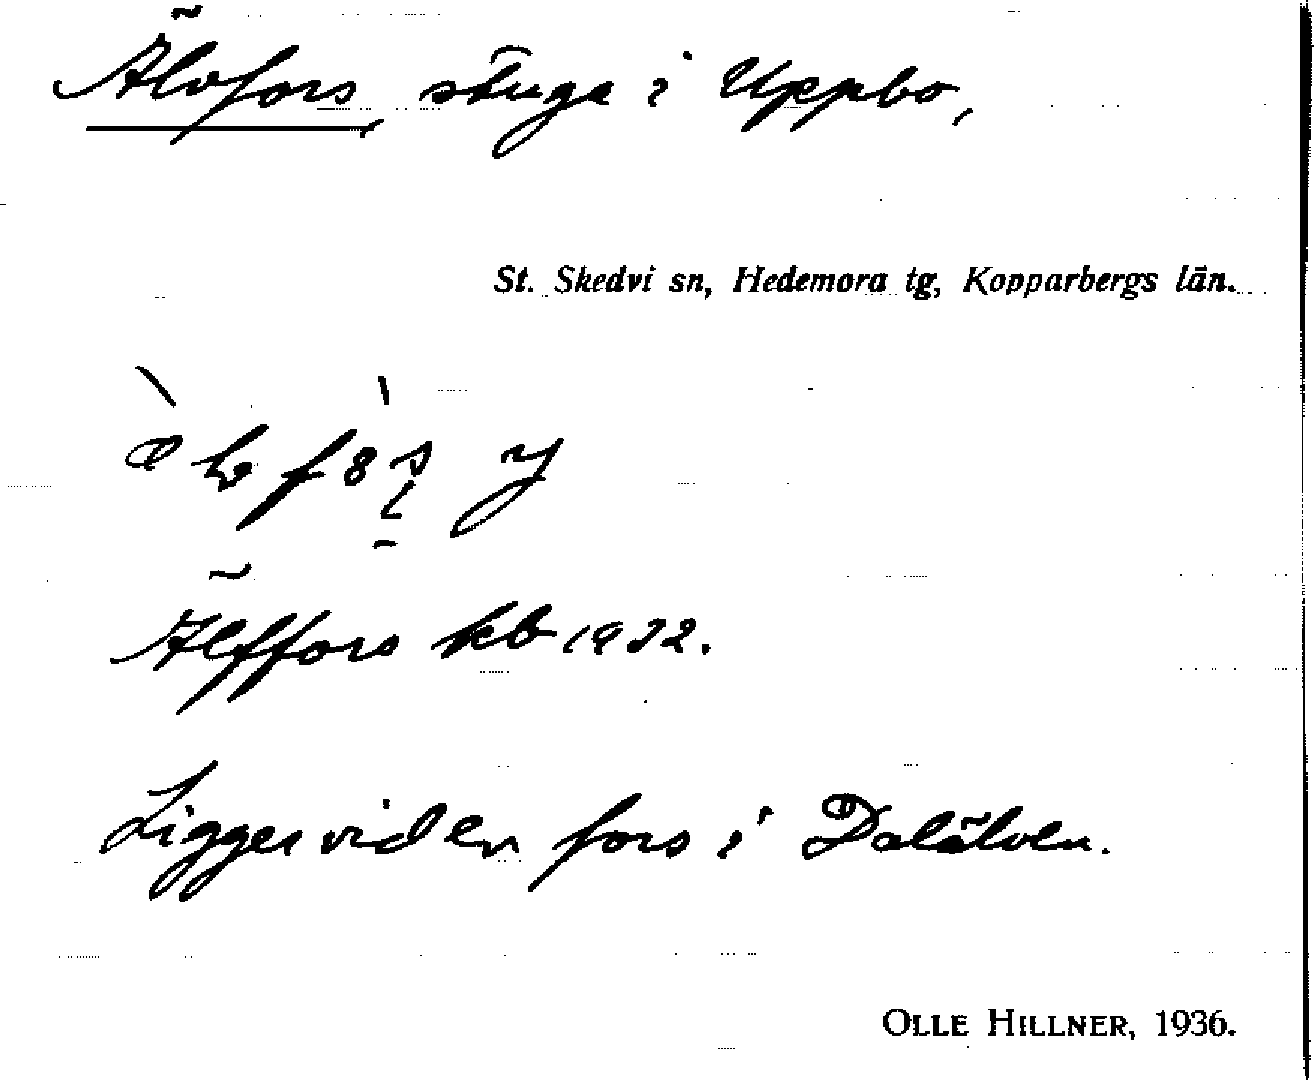 Älvfors, stuga i Uppbo,
St. Skedvi sn, Hedemora tg, Kopparbergs län.
Älffors kb 1932.
Ligger vid en fors i Dalälven.
OLLE HILLNER, 1936.